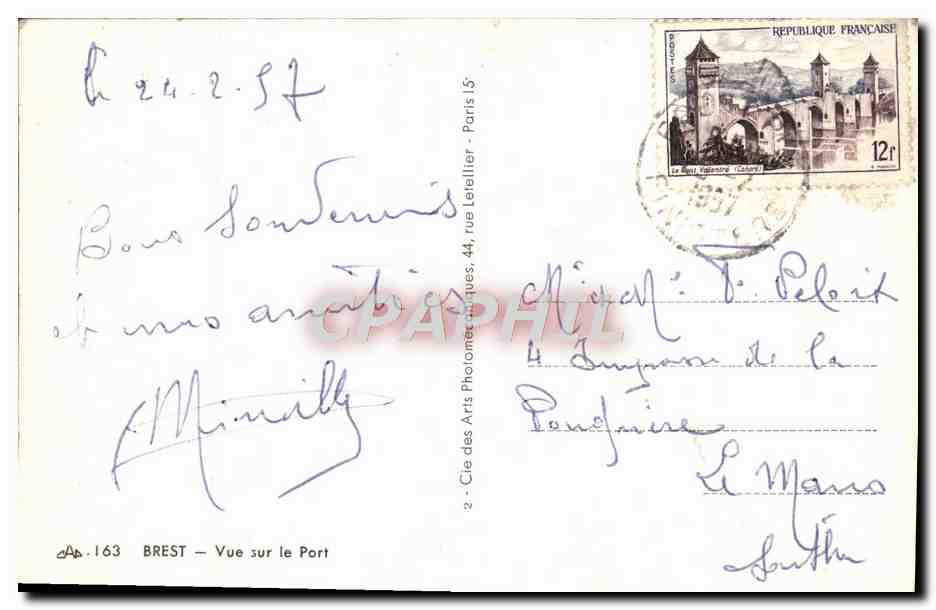 le 24.2.57
Bons Souvenirs
et mes amitiés
CAP.163 BREST – Vue sur le Port
2 - Cie des Arts Photomécaniques, 44, rue Letellier - Paris 15
REPUBLIQUE FRANÇAISE
POSTES
12f
Le Pont Valentré (Cahors)
CPAPHIL
4 Impasse de la
Le Mans
Sarthe